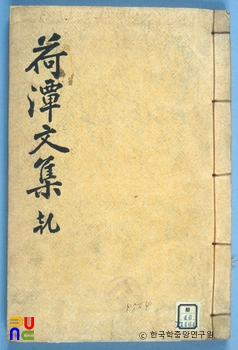 荷潭文集 乾
© 한국학중앙연구원